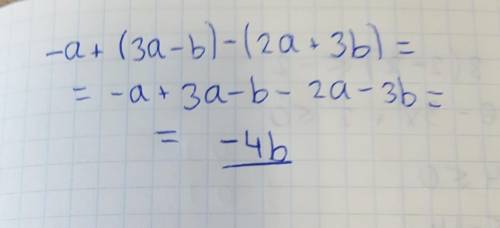 -a + (3a - b) - (2a + 3b) =
= -a + 3a - b - 2a - 3b =
= -4b